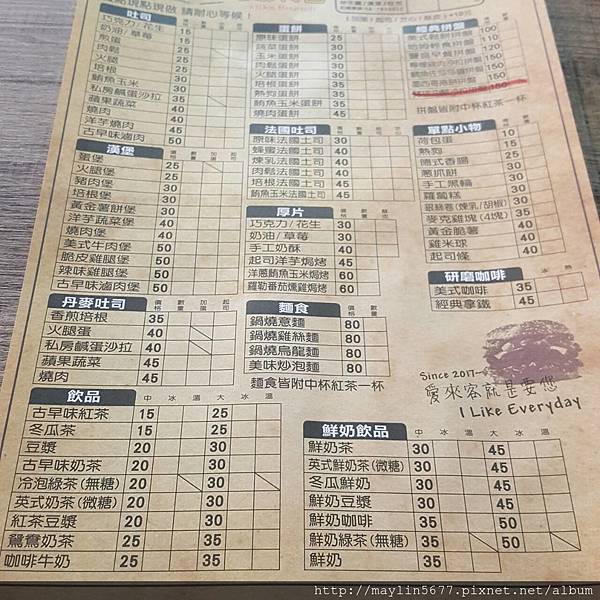 點現做 請耐心等候！
吐司
巧克力/花生 15
奶油/草莓 15
煎蛋 25
肉鬆 25
火腿 25
培根 30
鮪魚玉米 30
私房鹹蛋沙拉 35
蘋果蔬菜 35
燒肉 35
洋芋燒肉 45
古早味滷肉 45
漢堡
蛋堡 30
火腿堡 30
豬肉堡 30
培根堡 30
黃金薯餅堡 30
洋芋蔬菜堡 40
燒肉堡 40
美式牛肉堡 50
脆皮雞腿堡 50
辣味雞腿堡 50
古早味滷肉堡 50
丹麥吐司
香煎培根 35
火腿蛋 40
私房鹹蛋沙拉 40
蘋果蔬菜 45
燒肉 45
飲品 中 冰 溫 大 冰 溫
古早味紅茶 15 25
冬瓜茶 15 25
豆漿 20 30
古早味奶茶 20 30
冷泡綠茶(無糖) 20 30
英式奶茶(微糖) 20 30
紅茶豆漿 20 30
鴛鴦奶茶 25 35
咖啡牛奶 25 35
蛋餅
原味蛋餅
蔬菜蛋餅 30
玉米蛋餅 30
火腿蛋餅 30
培根蛋餅 30
熱狗蛋餅 30
鮪魚玉米蛋餅
法國吐司
原味法國土司 30
蜂蜜法國土司 40
煉乳法國土司 40
肉鬆法國土司 40
培根法國土司 45
鮪魚玉米法國土司 45
厚片
巧克力/花生 30
奶油/草莓 30
手工奶酥 40
起司洋芋焗烤 45
洋蔥鮪魚玉米焗烤 60
羅勒番茄燻雞焗烤 60
麵食
鍋燒意麵 80
鍋燒雞絲麵 80
鍋燒烏龍麵 80
美味炒泡麵 50
麵食皆附中杯紅茶一杯
經典拼盤
拼盤皆附中杯紅茶一杯
單點小物
荷包蛋 10
熱狗 15
德式香腸
蔥抓餅 30
手工黑輪 30
蘿蔔糕 30
銀絲卷(煉乳/胡椒) 30
麥克雞塊(4塊) 35
黃金脆薯
雞米球
起司條
研磨咖啡 冰 熱
美式咖啡 35
經典拿鐵 45
Since 2017
愛來客就是要您
I Like Everyday
鮮奶飲品 中 冰 溫 大 冰 溫
鮮奶茶 30 45
英式鮮奶茶(微糖) 30 45
冬瓜鮮奶 30 45
鮮奶豆漿 30 45
鮮奶咖啡 35 50
鮮奶綠茶(無糖) 35 50
鮮奶 35
http://maylin5677.pixnet.net/album